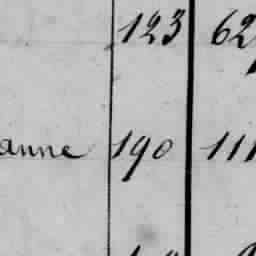 123 62
anne 190 111